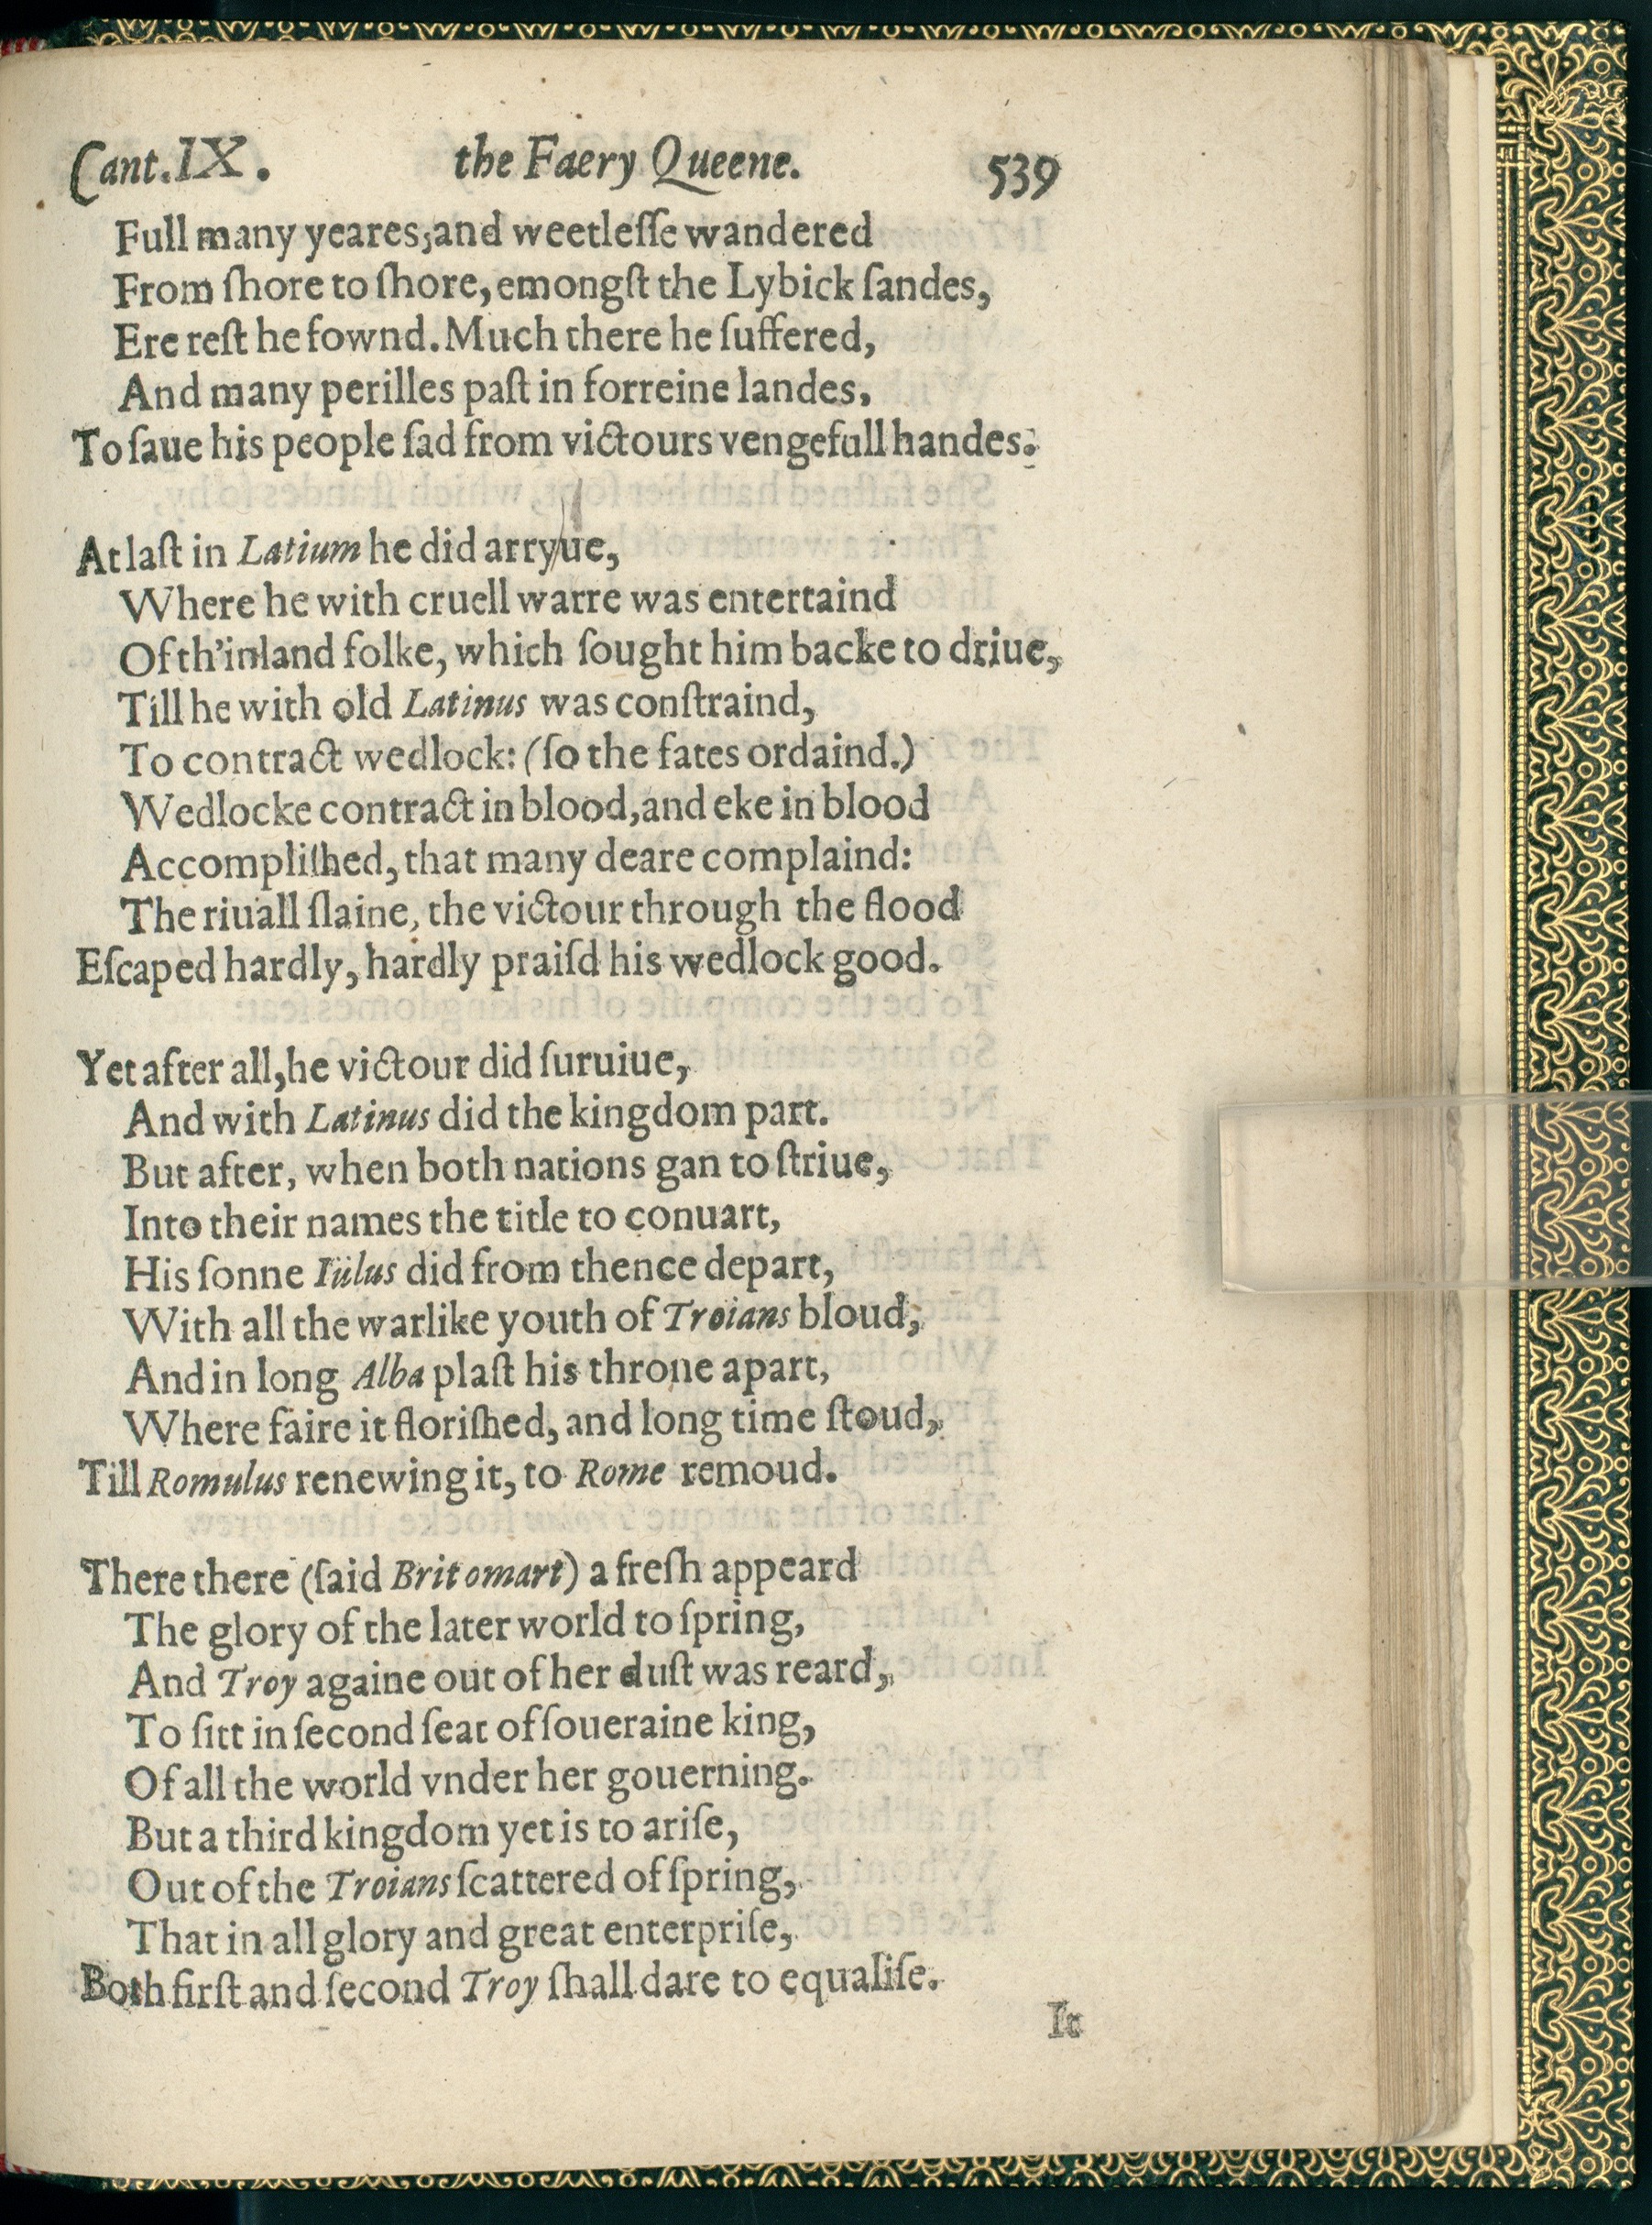 Cant.IX. the Faery Queene. 539
Full many yeares, and weetleſſe wandered
From ſhore to ſhore, emongſt the Lybick ſandes,
Ere reſt he fownd. Much there he ſuffered,
And many perilles paſt in forreine landes,
To ſaue his people ſad from victours vengefull handes.
At laſt in Latium he did arryue,
Where he with cruell warre was entertaind
Of th'inland folke, which ſought him backe to driue,
Till he with old Latinus was conſtraind,
To contract wedlock: (ſo the fates ordaind.)
Wedlocke contract in blood, and eke in blood
Accompliſhed, that many deare complaind:
The riuall ſlaine, the victour through the flood
Eſcaped hardly, hardly praiſd his wedlock good.
Yet after all, he victour did ſuruiue,
And with Latinus did the kingdom part.
But after, when both nations gan to ſtriue,
Into their names the title to conuart,
His ſonne Iülus did from thence depart,
With all the warlike youth of Troians bloud,
And in long Alba plaſt his throne apart,
Where faire it floriſhed, and long time ſtoud,
Till Romulus renewing it, to Rome remoud.
There there (ſaid Britomart) a freſh appeard
The glory of the later world to ſpring,
And Troy againe out of her duſt was reard,
To ſitt in ſecond ſeat of ſoueraine king,
Of all the world vnder her gouerning.
But a third kingdom yet is to ariſe,
Out of the Troians ſcattered of ſpring,
That in all glory and great enterpriſe,
Both firſt and ſecond Troy ſhall dare to equaliſe.
It